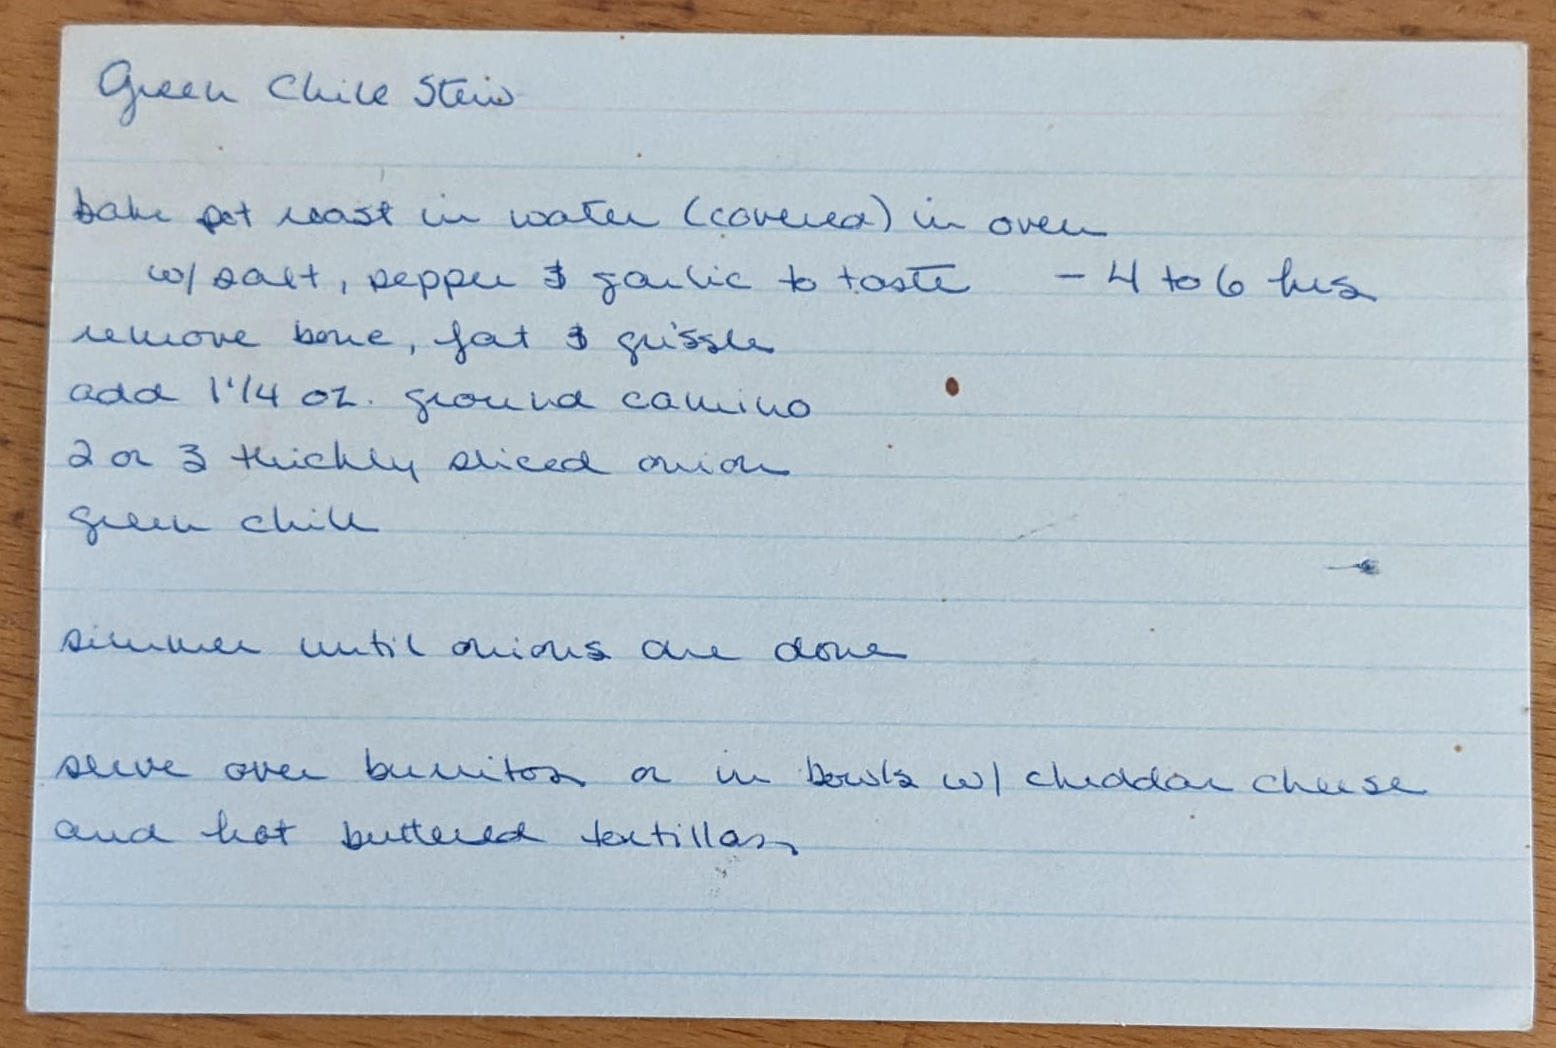 Green Chile Stew
bake pot roast in water (covered) in oven
w/ salt, pepper & garlic to taste - 4 to 6 hrs
remove bone, fat & grissle
add 1 1/4 oz. ground comino
2 or 3 thickly sliced onion
green chile
simmer until onions are done
serve over burritos or in bowls w/ cheddar cheese
and hot buttered tortillas